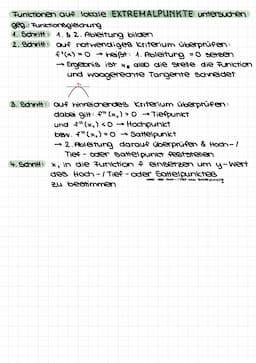 Funktionen auf lokale EXTREMALPUNKTE untersuchen
geg.: Funktionsgleichung
1. Schritt: 1. & 2. Ableitung bilden
2. Schritt: auf notwendiges Kriterium überprüfen:
f'(x) = 0 → heißt: 1. Ableitung = 0 setzen
→ Ergebnis ist x₁, also die Stelle die Funktion
und waagerechte Tangente schneidet
3. Schritt: auf hinreichendes Kriterium überprüfen:
dabei gilt: f''(x₁) > 0 → Tiefpunkt
und f''(x₁) < 0 → Hochpunkt
bzw. f''(x₁) = 0 → Sattelpunkt
→ 2. Ableitung darauf überprüfen & Hoch-/
Tief- oder Sattelpunkt feststellen
4. Schritt: x₁ in die Funktion f einsetzen um y-Wert
des Hoch-/Tief- oder Sattelpunktes
zu bestimmen